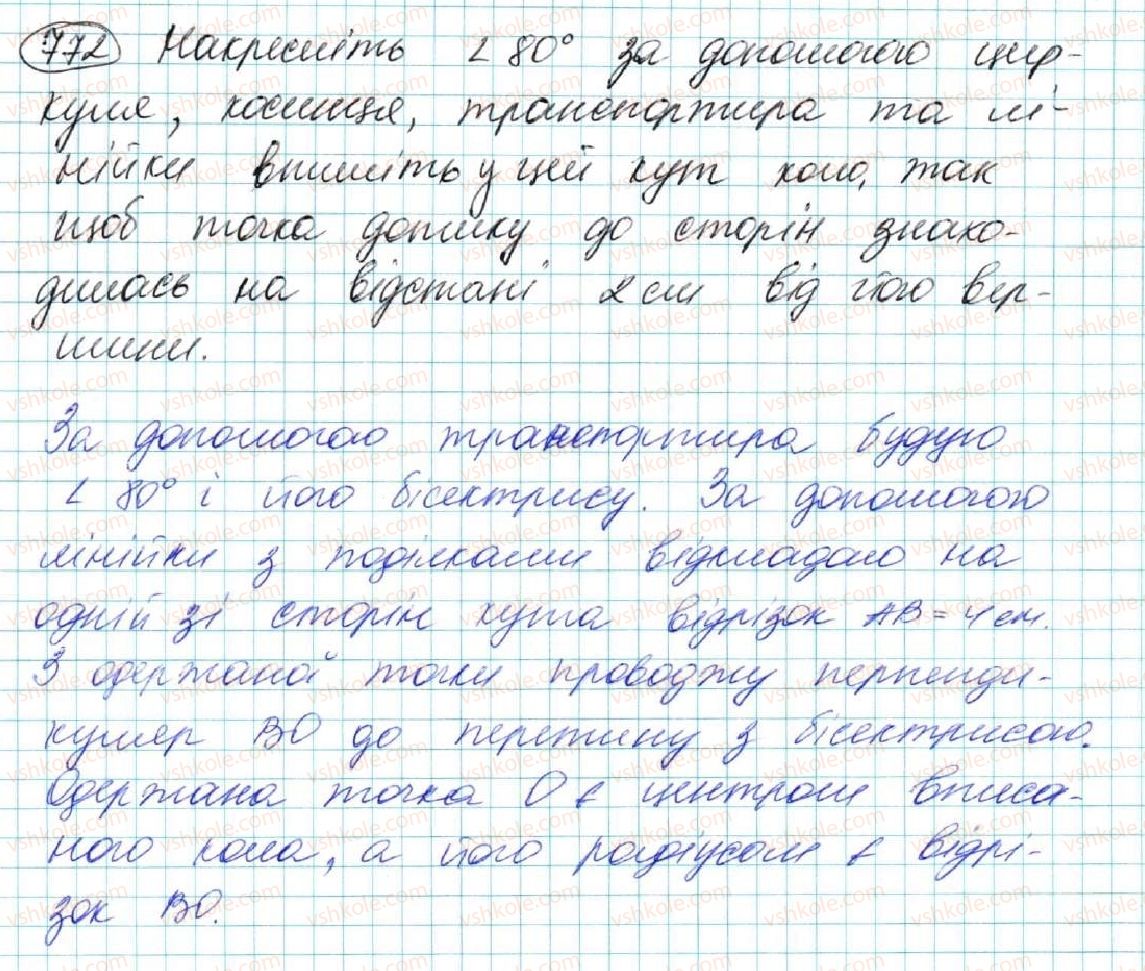 772 Накресліть ∠80° за допомогою цир-
куля, косинця, транспортира та лі-
нійки впишіть у цей кут коло, так
щоб точка дотику до сторін знахо-
дилась на відстані 2 см від його вер-
шини.
За допомогою транспортира будую
∠80° і його бісектрису. За допомогою
лінійки з поділками відкладаю на
одній зі сторін кута відрізок AB = 4 см.
З одержаної точки проводжу перпенди-
куляр BO до перетину з бісектрисою.
Одержана точка O є центром вписа-
ного кола, а його радіусом є відрі-
зок BO.